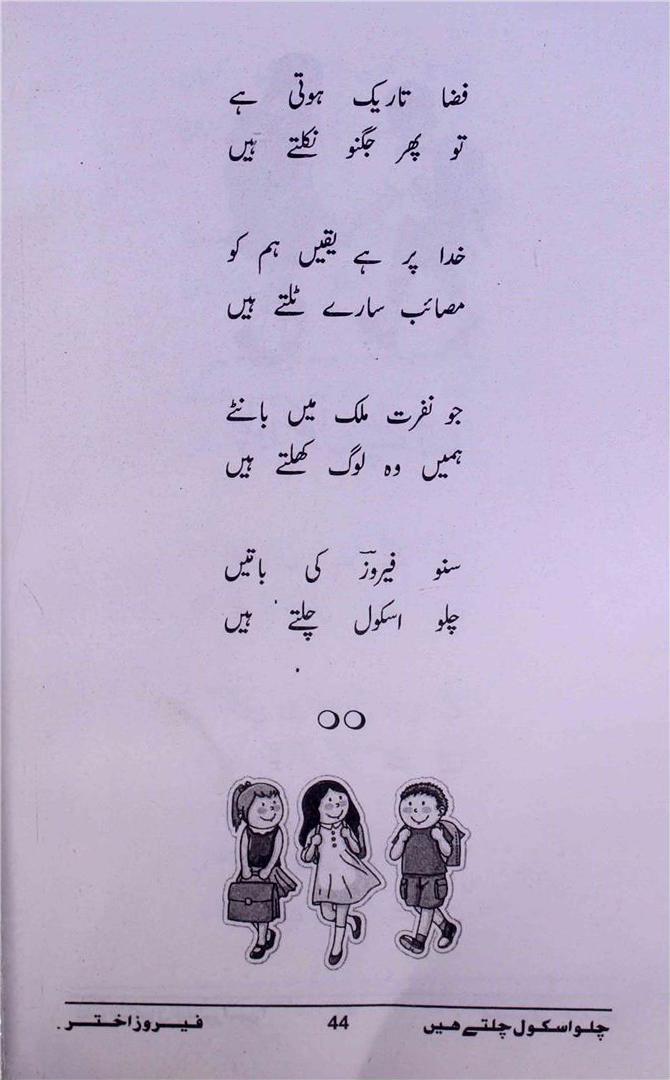 فضا تاریک ہوتی ہے
تو پھر جگنو نکلتے ہیں
خدا پر ہے یقیں ہم کو
مصائب سارے ٹلتے ہیں
جو نفرت ملک میں بانٹے
ہمیں وہ لوگ کھلتے ہیں
سنو فیروزؔ کی باتیں
چلو اسکول چلتے ہیں
چلو اسکول چلتے ہیں 44 فیروز اختر